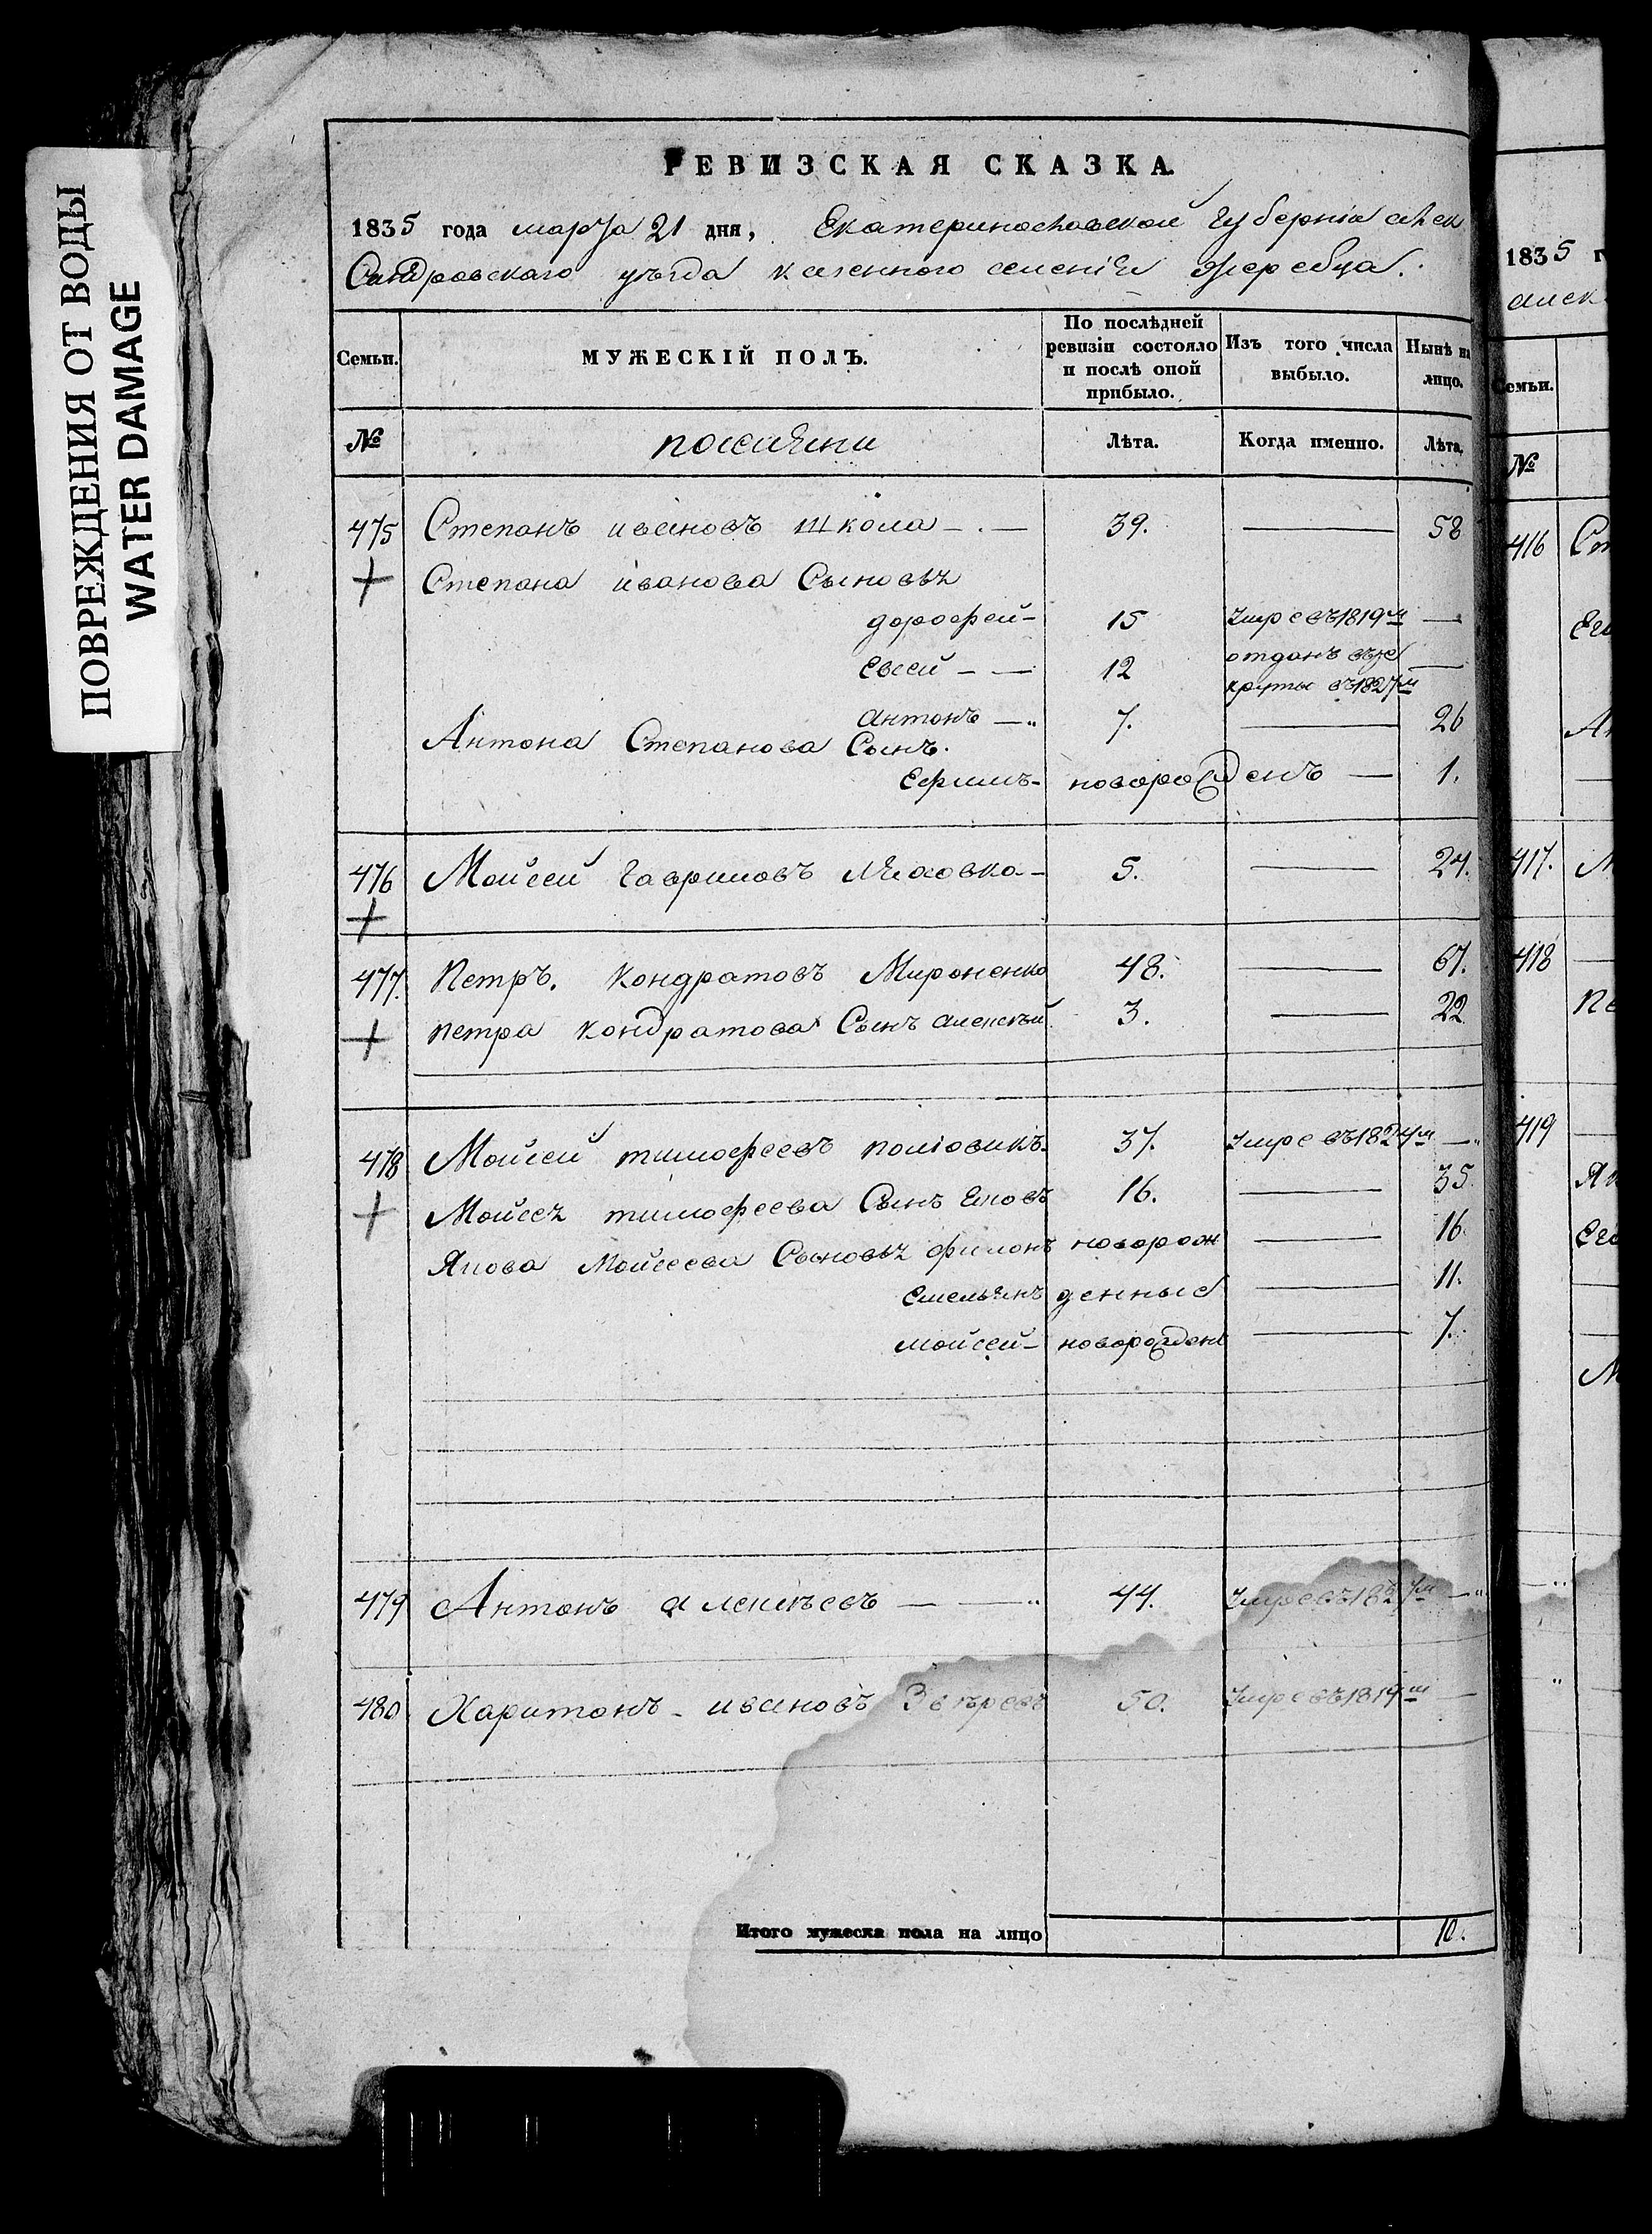 ПОВРЕЖДЕНИЯ ОТ ВОДЫ
WATER DAMAGE
РЕВИЗСКАЯ СКАЗКА.
1835 года марта 21 дня, Екатеринославской губерніи алек
Сандровского уѣзда казенного селенія Жеребца.
Семьи. МУЖЕСКІЙ ПОЛЪ. По послѣдней ревизіи состояло и послѣ оной прибыло. Изъ того числа выбыло. Нынѣ на лицо.
№ поселяни Лѣта. Когда именно. Лѣта.
475 Степанъ ивановъ Школа 39. — 58
Степана иванова Сыновья
дорофей 15 Умре въ 1819м —
Евсей 12 отданъ въре —
круты въ 1827м
антонъ 7. — 26
Антона Степанова Сынъ.
Ефимъ новорожденъ — 1.
476 Мойсей Гавриловъ 5. — 24.
477. Петръ. Кондратовъ Мироненко 48. — 67.
петра кондратова Сынъ алексѣй 3. — 22
478 Мойсей тимофеевъ половикъ 37. Умре въ 1824м —
Мойсея тимофеева Сынъ Яковъ 16. — 35.
Якова Мойсеева Сыновья филонъ новорож — 16.
Емельянъ денные — 11.
мойсей новорожденъ — 7.
479 Антонъ алексѣевъ — 44. Умре въ 1827м —
480 Харитонъ ивановъ Звѣревъ 50. Умре въ 1819м —
Итого мужеска пола на лицо 10.
1835 г
алек
Семьи.
№
416 Ст
Ег
Ан
417. М
418
Пе
419
Як
Ег
М